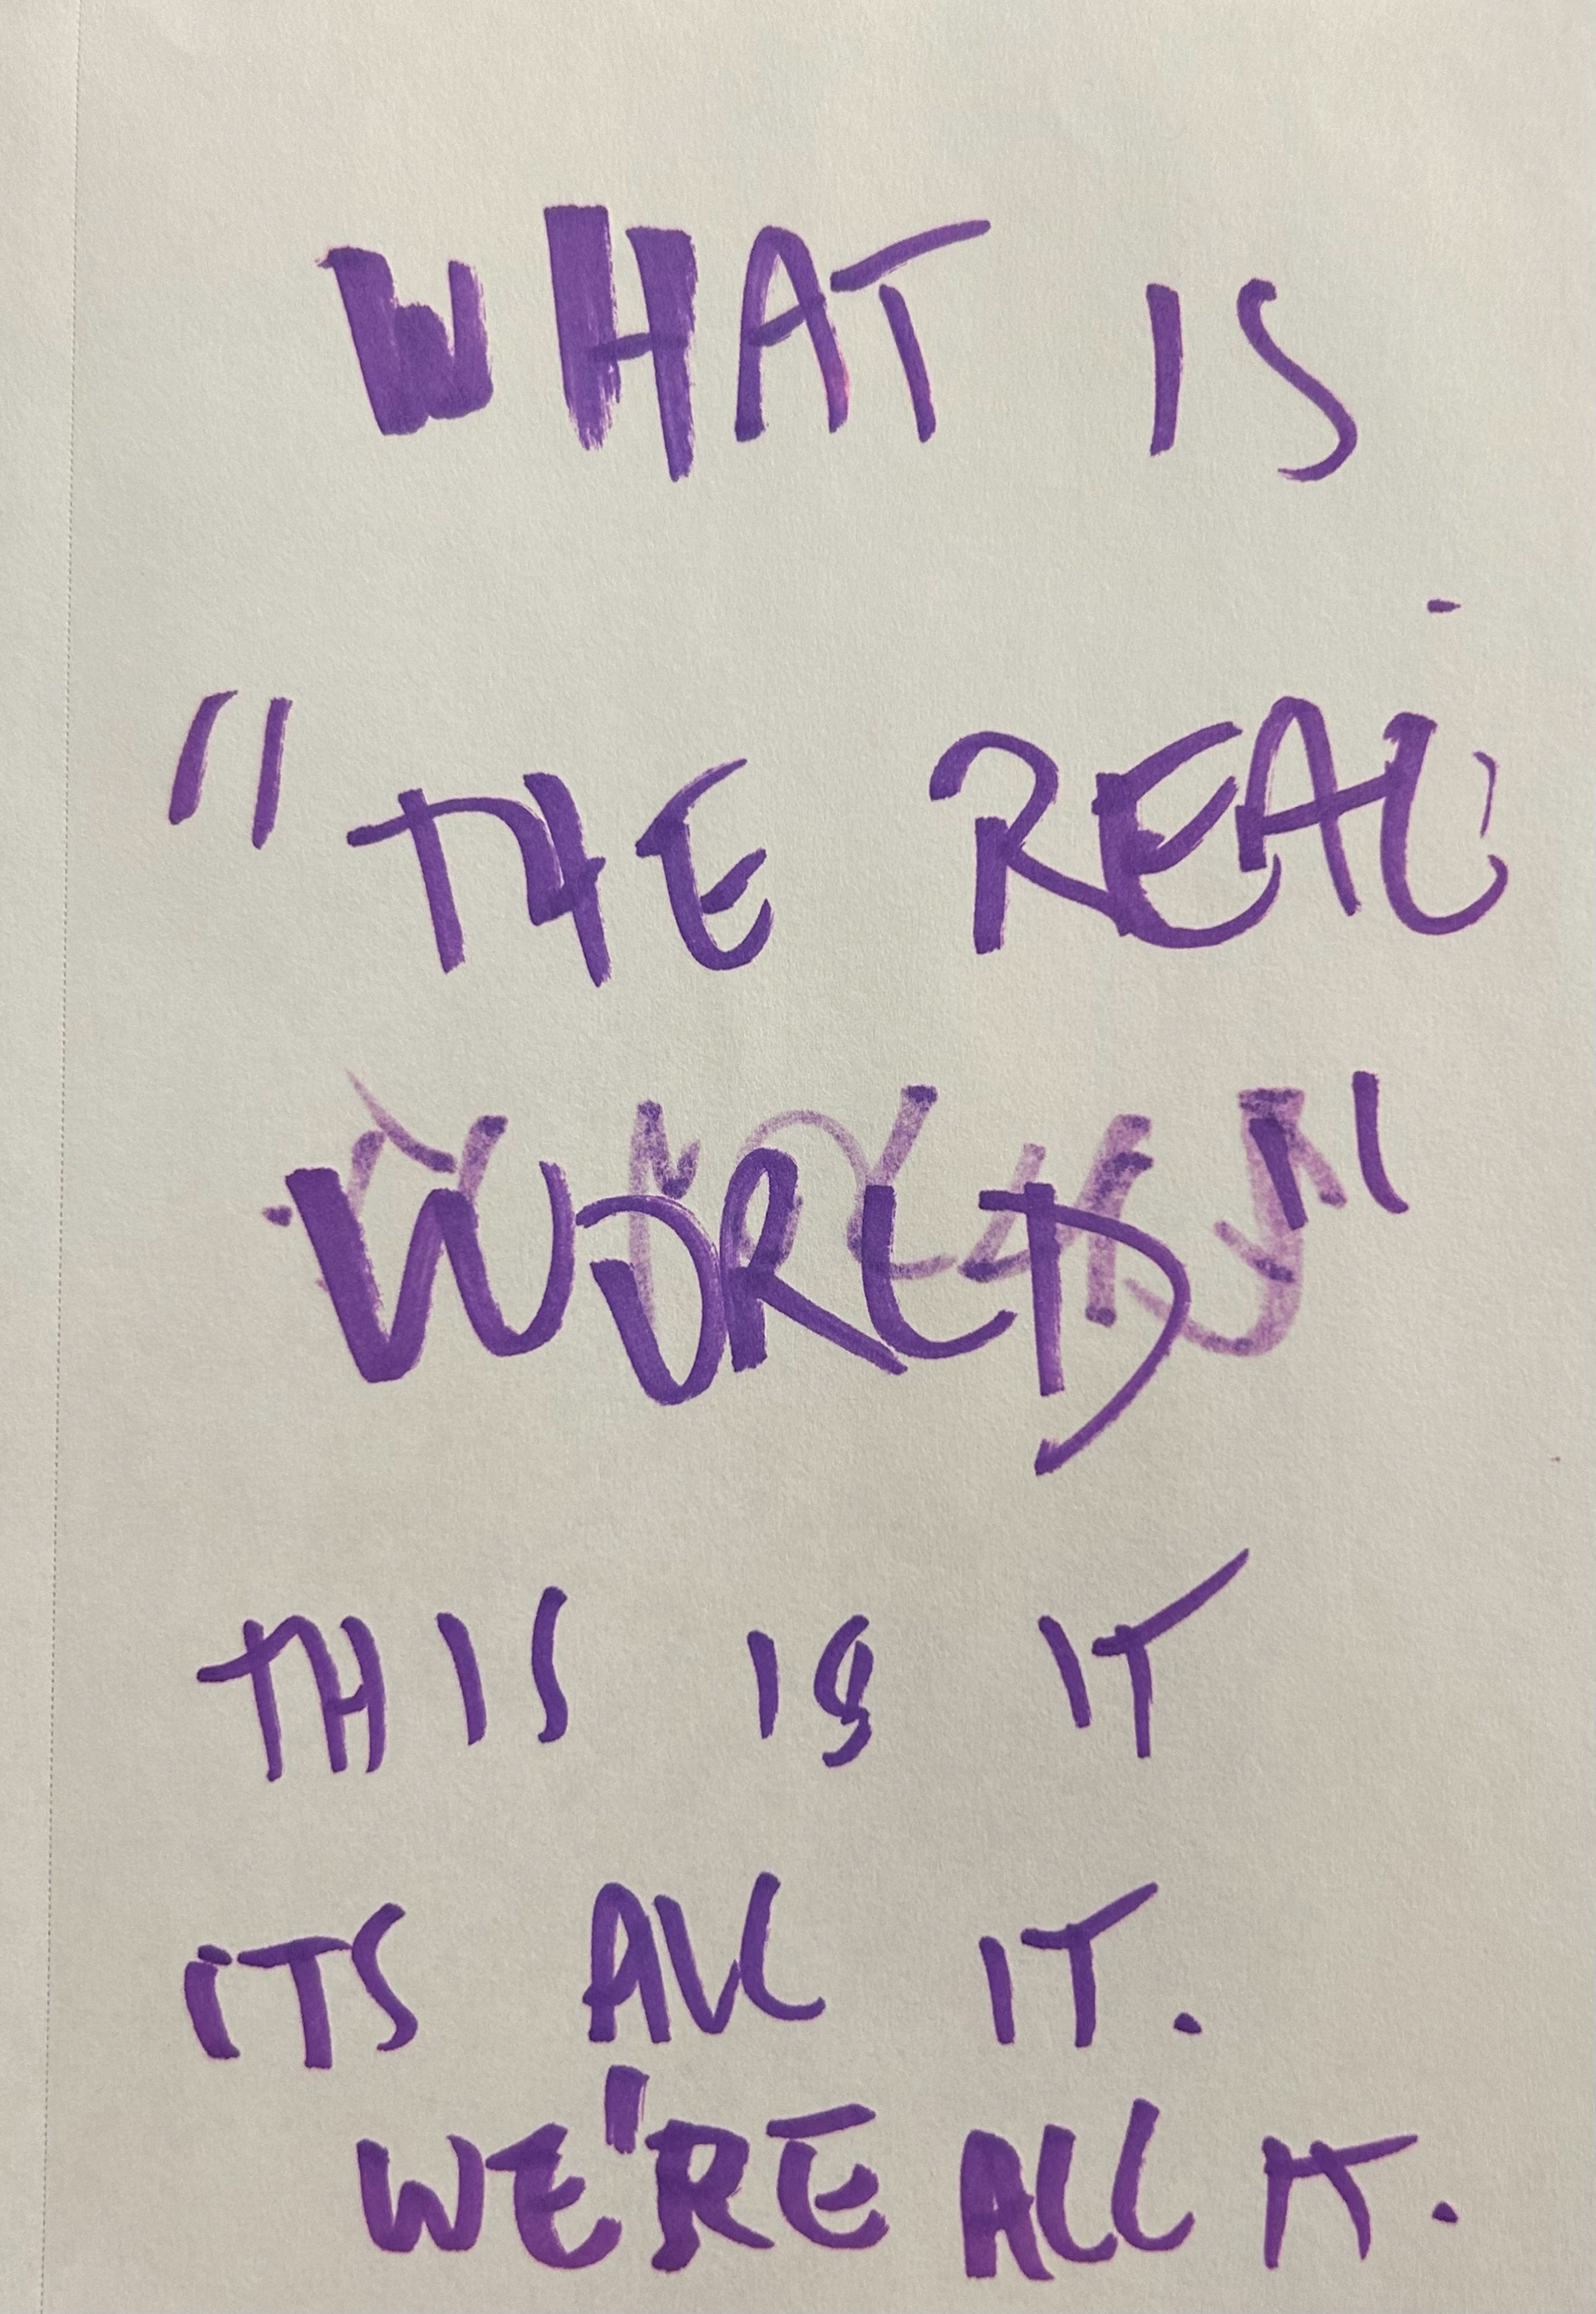 WHAT IS
"THE REAL
WORLD"
THIS IS IT
ITS ALL IT.
WE'RE ALL IT.